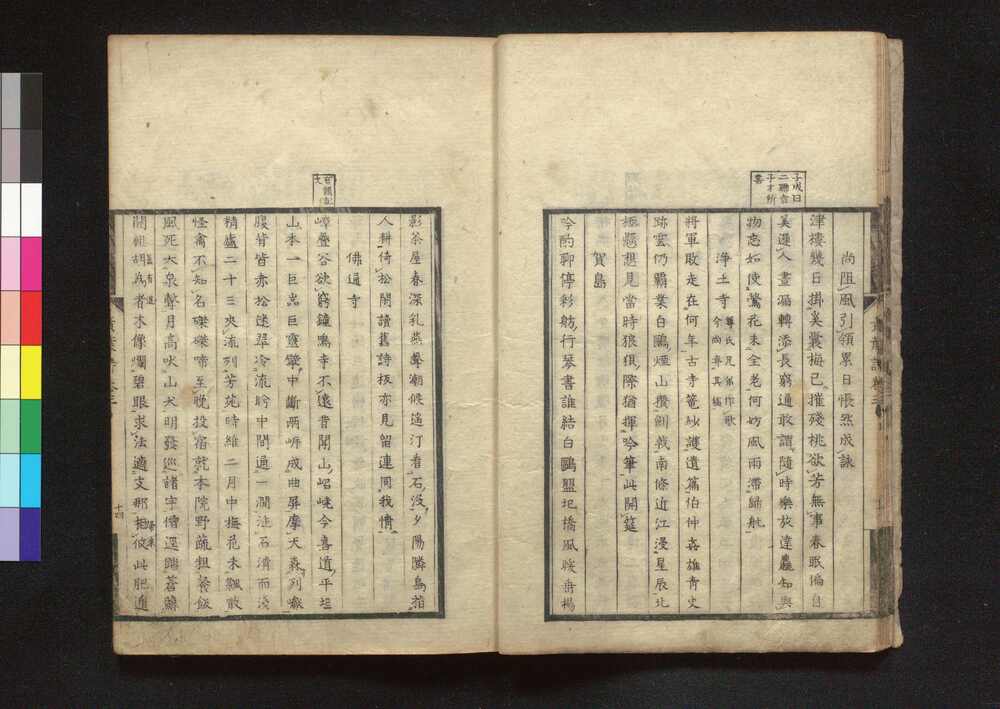 子成曰
二聯古
才子所
尚阻風引領累日悵然成詠
津樓幾日掛奚囊梅已摧殘桃欲芳無事春眠偏自
美遲人晝漏轉添長窮通敢謂隨時樂放達麤知與
物忘如使鶯花未全老何妨風雨滯歸航
淨土寺 尊氏兄弟作歌今尚存其稿
將軍敗走在何年古寺篭紗護遺篇伯仲姦雄靑史
跡雲仍覇業白鷗煙山攢劍戟南條近江漫星辰北
極懸想見當時狼狽際猶揮吟筆此開筵
賀島
吟酌聊停彩舫行琴書誰結白鷗盟圯橋風暖垂楊
影茶屋春深乳燕聲潮候遙汀看石沒夕陽隣島
人耕倚松閒讀舊詩板亦見留連同我情
佛通寺
嶂疊谷欲窮鐘鳴寺不遠昔聞山岹嶢今喜道平坦
山本一巨嵓巨靈擘中斷兩崖成曲屏摩天森列巘
腹背皆赤松迷翠冷流吟中間通一澗注石濆而淺
精廬二十三夾流列芳苑時維二月中梅花未飄散
怪禽不知名磔磔啼至晚投宿就本院野蔬粗餐飯
風死大泉聲月高吠山犬明發巡諸宇僧逕蹋蒼蘚
開
胡爲者木像爛碧眼求法適支那
彼此肥遁
十四